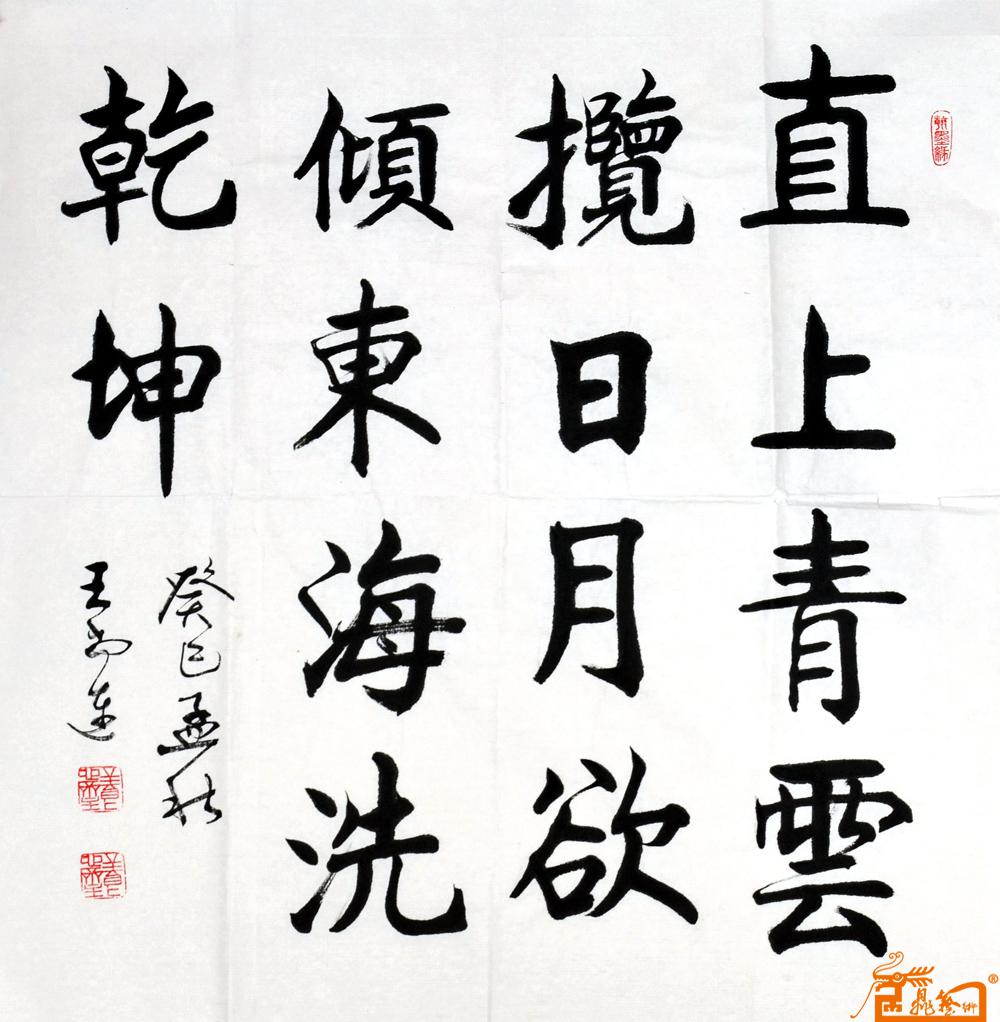 直上青雲
攬日月欲
傾東海洗
乾坤
癸巳孟秋